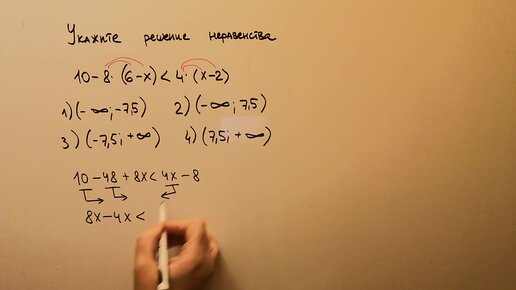 Укажите решение неравенства
10-8·(6-x)<4·(x-2)
1)(-∞;-7,5) 2)(-∞;7,5)
3)(-7,5;+∞) 4)(7,5;+∞)
10-48+8x<4x-8
8x-4x<